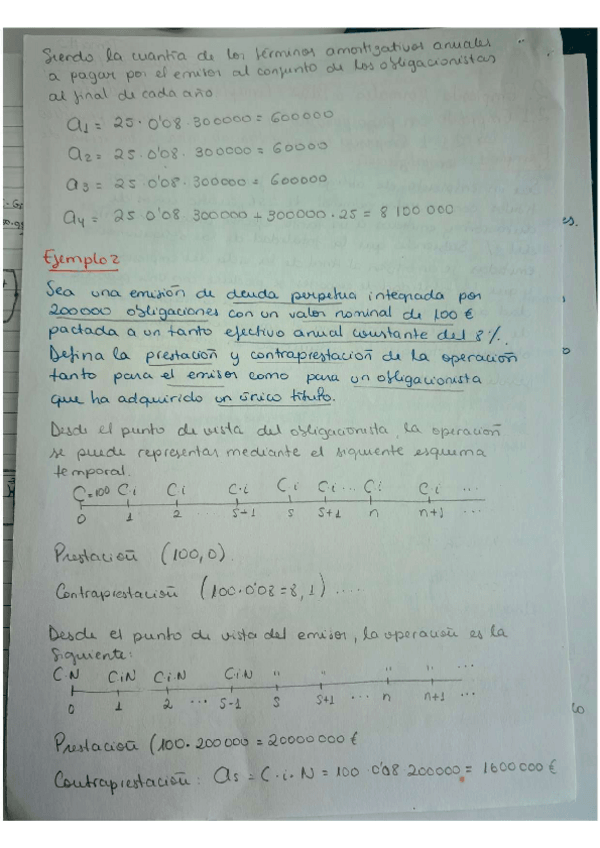 Siendo la cuantía de los términos amortigativos anuales
a pagar por el emisor al conjunto de los obligacionistas
al final de cada año
a1 = 25 · 0'08 · 300000 = 600000
a2 = 25 · 0'08 · 300000 = 60000
a3 = 25 · 0'08 · 300000 = 600000
a4 = 25 0'08 · 300000 + 300000 · 25 = 8 100 000
es.
Ejemplo 2
Sea una emisión de deuda perpetua integrada por
200000 obligaciones con un valor nominal de 100 €
pactada a un tanto efectivo anual constante del 8%.
Defina la prestación y contraprestación de la operación
tanto para el emisor como para un obligacionista
que ha adquirido un único título.
Desde el punto de vista del obligacionista, la operación
se puede representar mediante el siguiente esquema
temporal.
C=100 Ci Ci C·i Ci Ci... Ci Ci ...
0 1 2 ... s+1 s s+1 n n+1 ...
Prestación (100,0).
Contraprestación (100·0'08=8,1) ....
Desde el punto de vista del emisor, la operación es la
siguiente:
C·N CiN Ci·N CiN " " " " ...
0 1 2 ... s-1 s s+1 ... n n+1 ...
Prestación (100·200000 = 20000000 €
Contraprestación: as = C·i·N = 100·0'08 200000 = 1600000 €